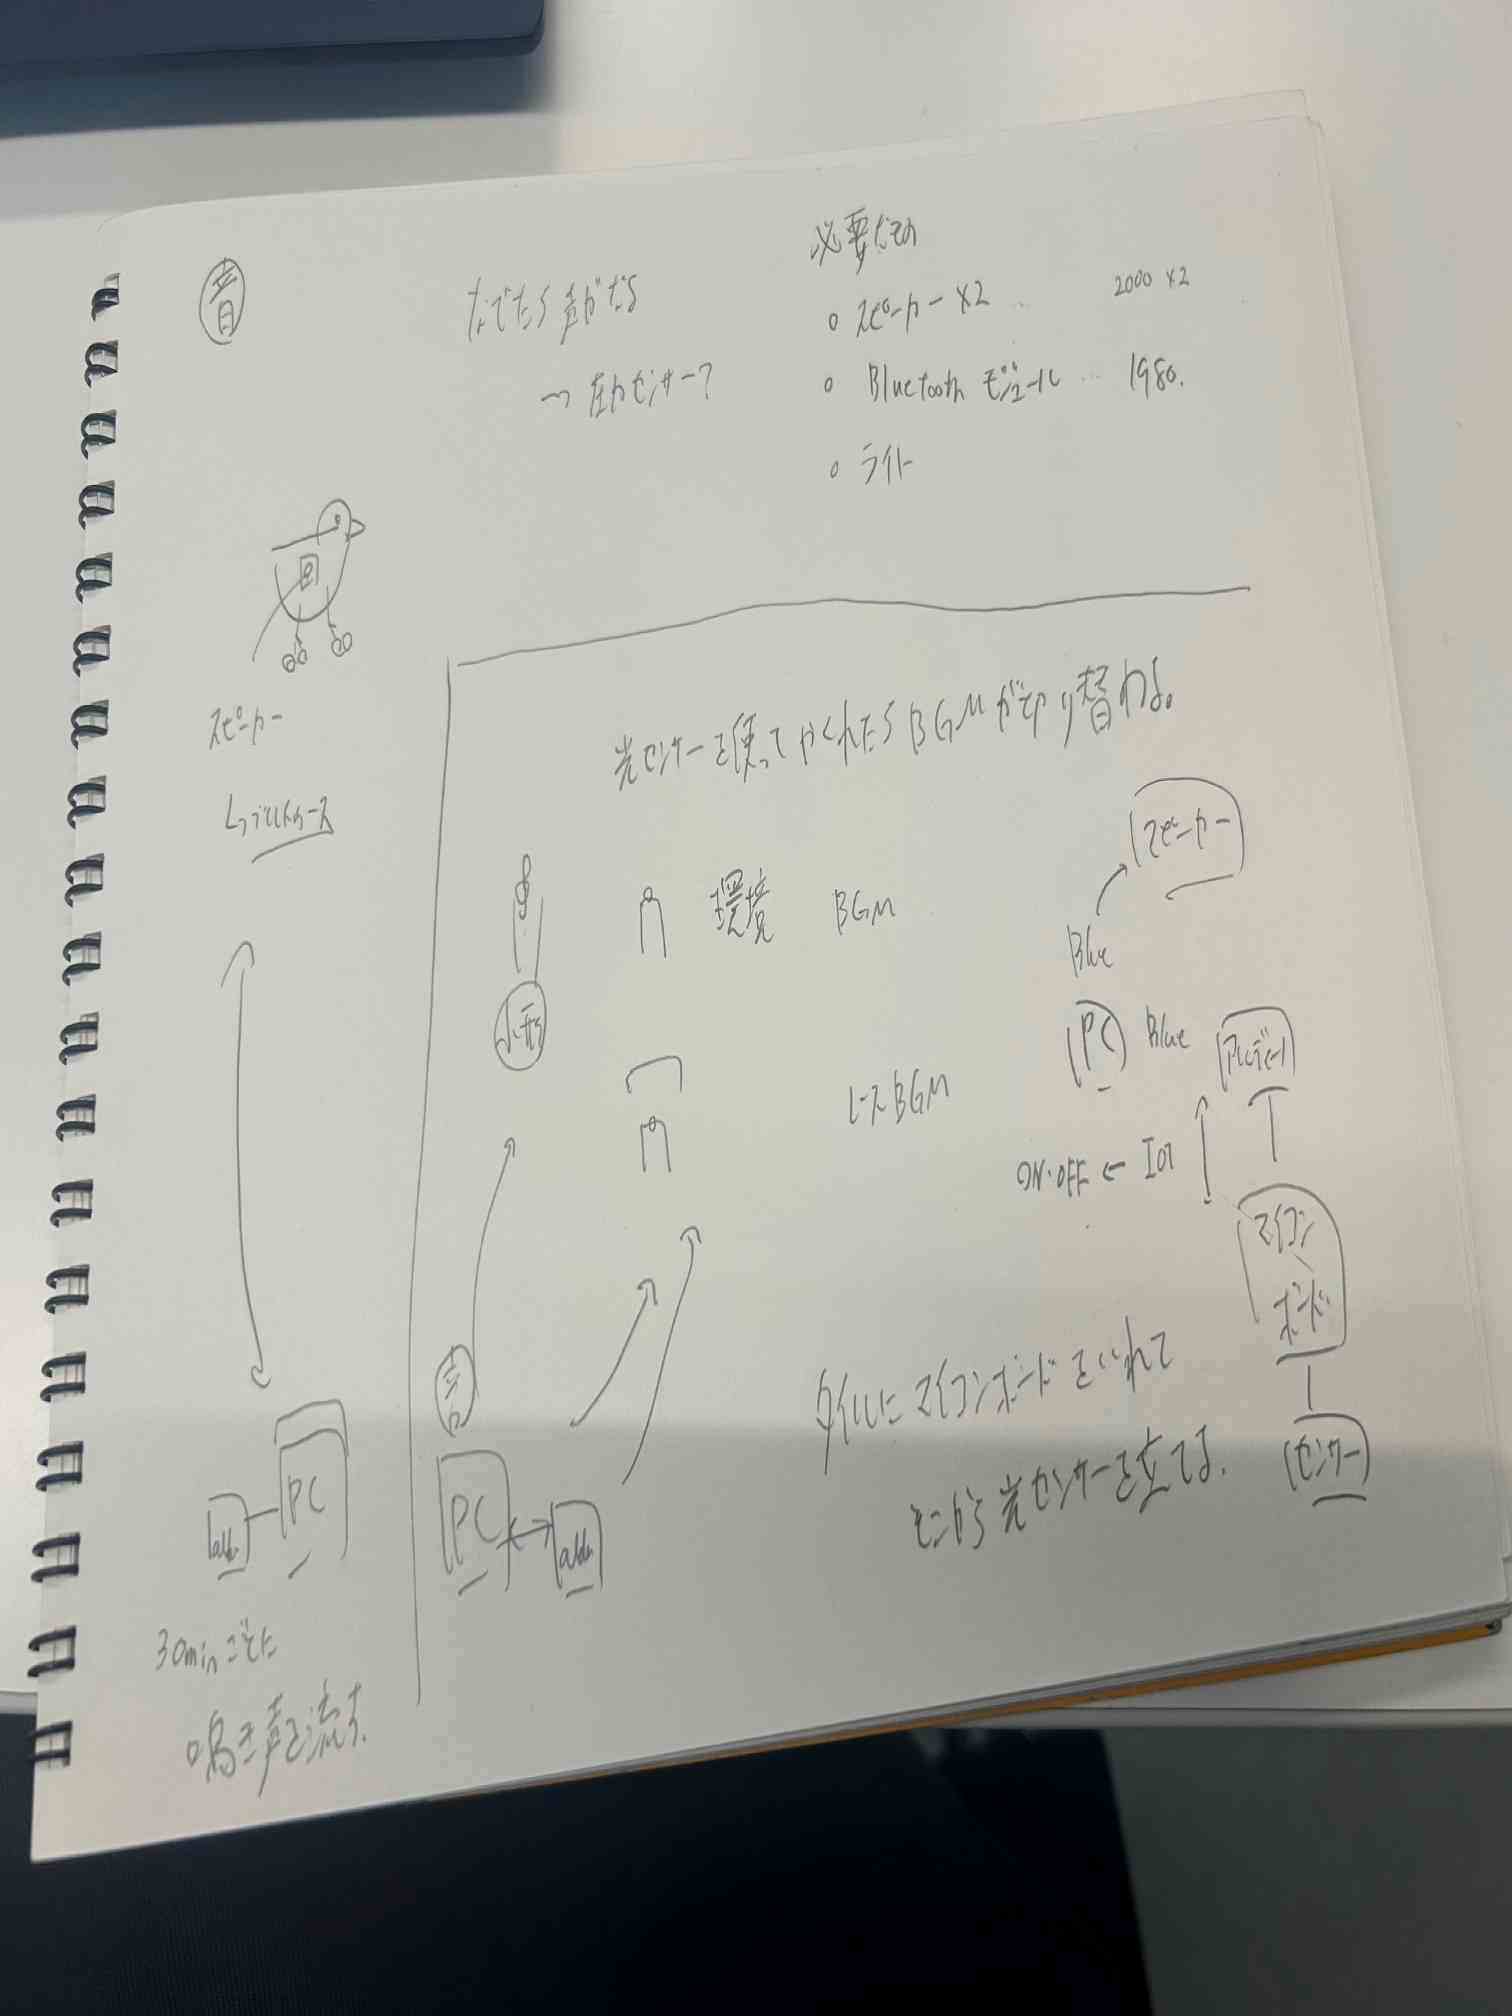 音
なでたら声がなる
→ 圧力センサー?
必要なもの
○ スピーカー ×2 … 2000 ×2
○ Bluetooth モジュール … 1980.
○ ライト
スピーカー
30minごとに
○鳴き声を流す.
光センサーを使ってかくれたらBGMが切り替わる。
環境 BGM
レースBGM
音
PC
PC
スピーカー
Blue
PC Blue
ON・OFF ← IoT
マイコン
ボード
センサー
タイルにマイコンボードをいれて
そこから光センサーを立てる.